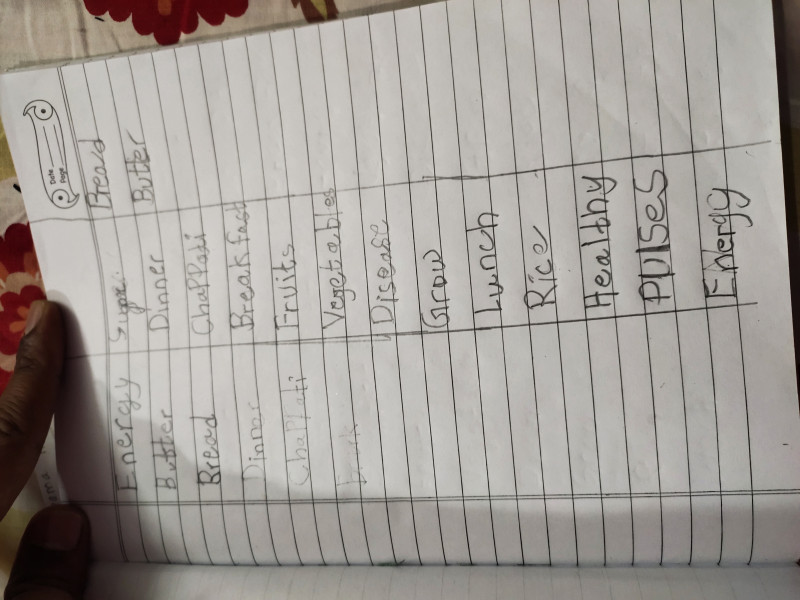 Date
Page
Energy
Butter
Bread
Dinner
ChaPPati
Dinner
ChaPPati
Breakfast
Fruits
Vegetables
Disease
Grow
Lunch
Rice
Healthy
PUlSes
Energy
Bread
Butter